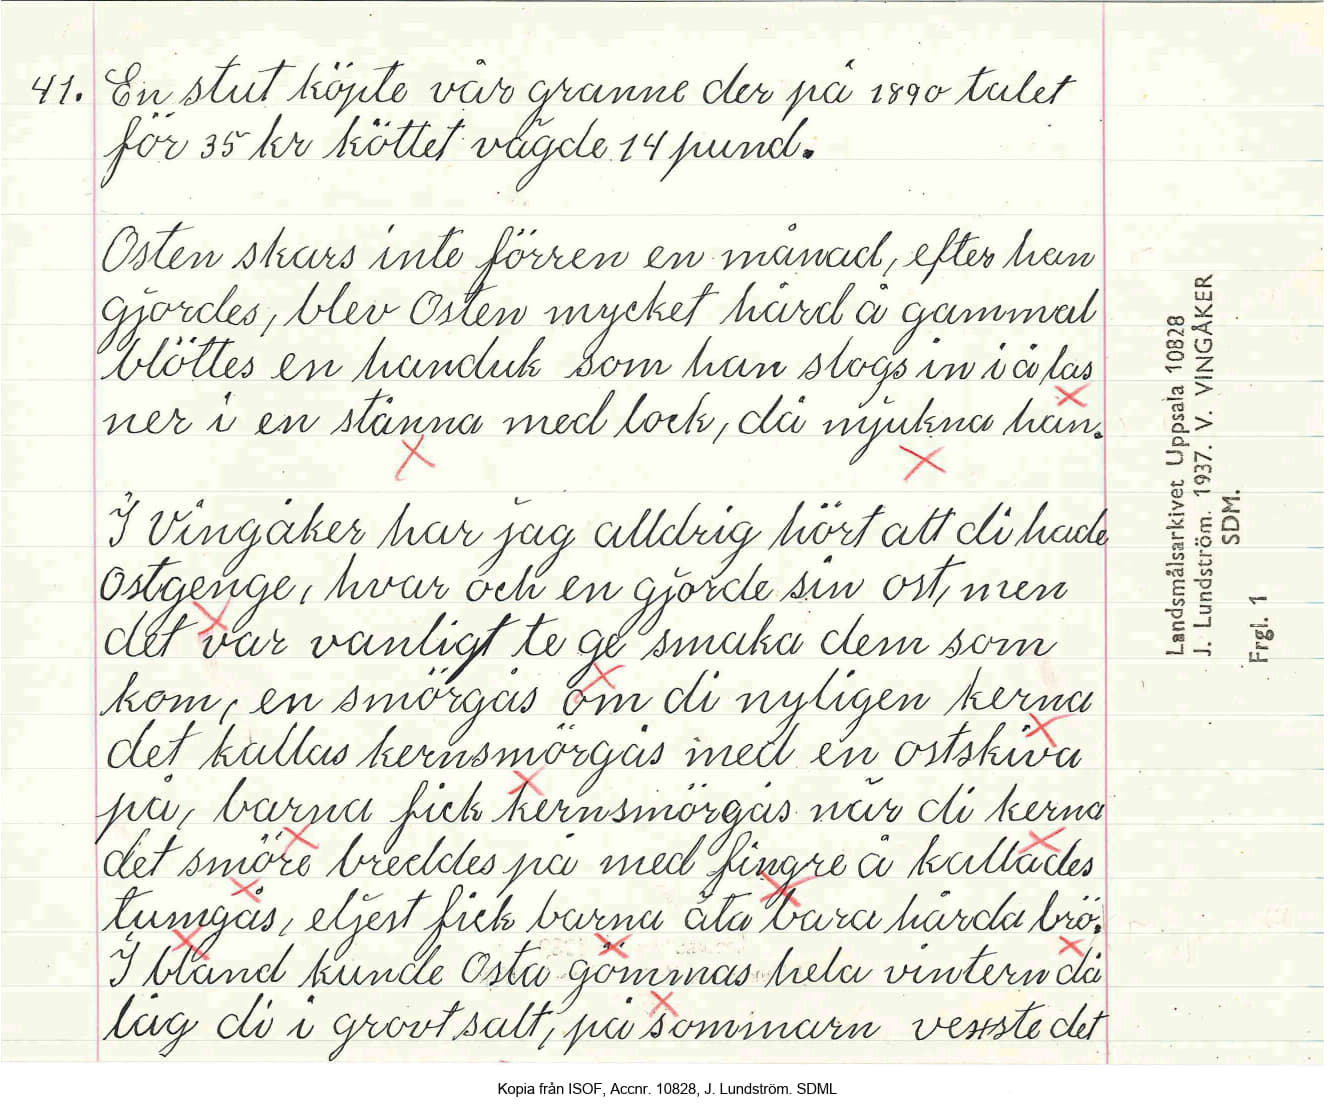 41. En stut köpte vår granne der på 1890 talet
för 35 kr köttet vägde 14 pund.
Osten skars inte förren en månad, efter han
gjordes, blev Osten mycket hård å gammal
blöttes en handuk som han slogs in i å las
ner i en stånna med lock, då mjukna han.
I Vingåker har jag alldrig hört att di hade
Ostgenge, hvar och en gjorde sin ost, men
det var vanligt te ge smaka dem som
kom, en smörgås om di nyligen kerna
det kallas kernsmörgås med en ostskiva
på, barna fick kernsmörgås när di kerna
det smöre breddes på med fingre å kallades
tumgås, eljest fick barna äta bara hårda brö.
I bland kunde Osta gömmas hela vintern då
låg di i grovt salt, på sommarn vexste det
Landsmålsarkivet Uppsala 10828
J. Lundström. 1937. V. VINGÅKER
SDM.
Frgl. 1
Kopia från ISOF, Accnr. 10828, J. Lundström. SDML